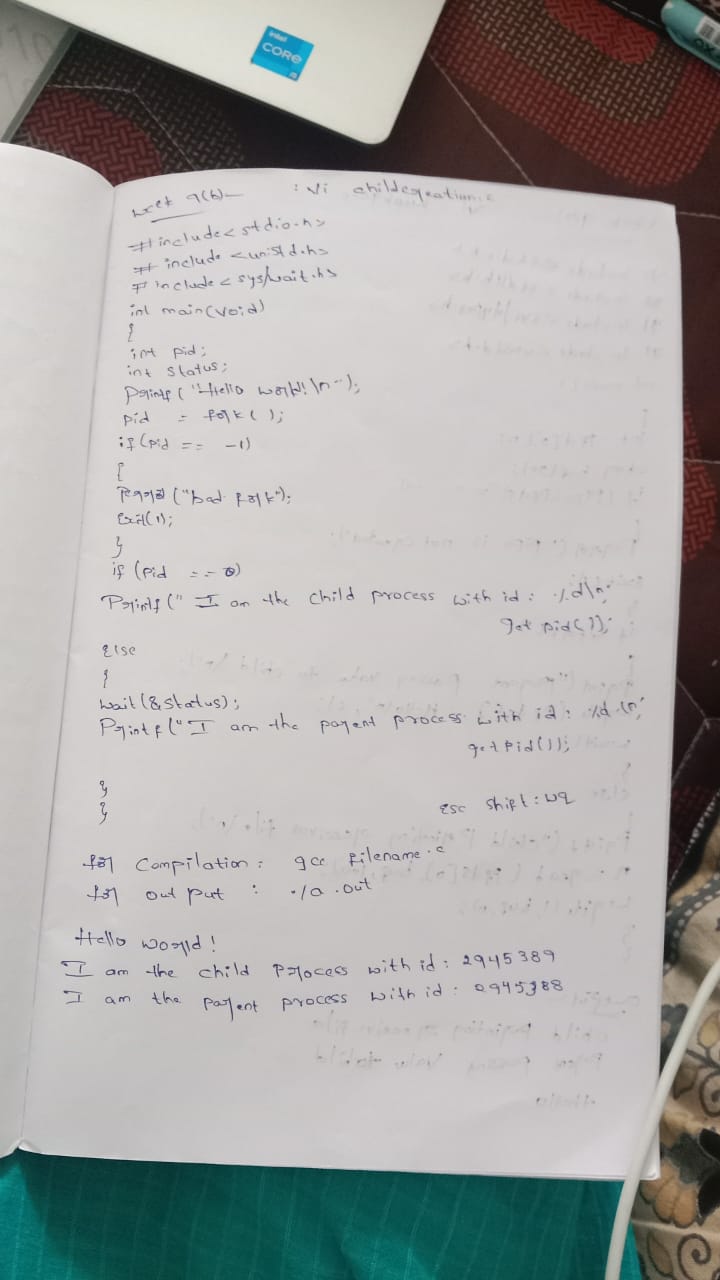 intel
CORE
i5
week 9(b)- : vi childcreation.c
#include<stdio.h>
# include <unistd.h>
# include < sys/wait.h>
int main(void)
{
int pid;
int status;
Printf ("Hello world! \n");
pid = fork ( );
if (pid == -1)
{
("bad fork");
Exit(1);
}
if (pid == 0)
Printf (" I am the child process with id : %d\n",
get pid());
else
{
wait (&status);
Printf (" I am the parent process with id : %d \n",
get pid());
}
}
esc shift : wq
for Compilation : gcc filename.c
for out put : ./a .out
Hello world !
I am the child Process with id : 2945389
I am the parent process with id : 2945388